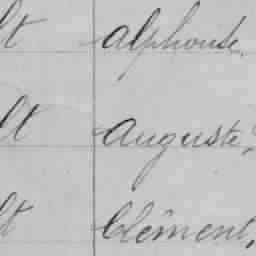 lt alphonse.
lt auguste,
lt Clément,